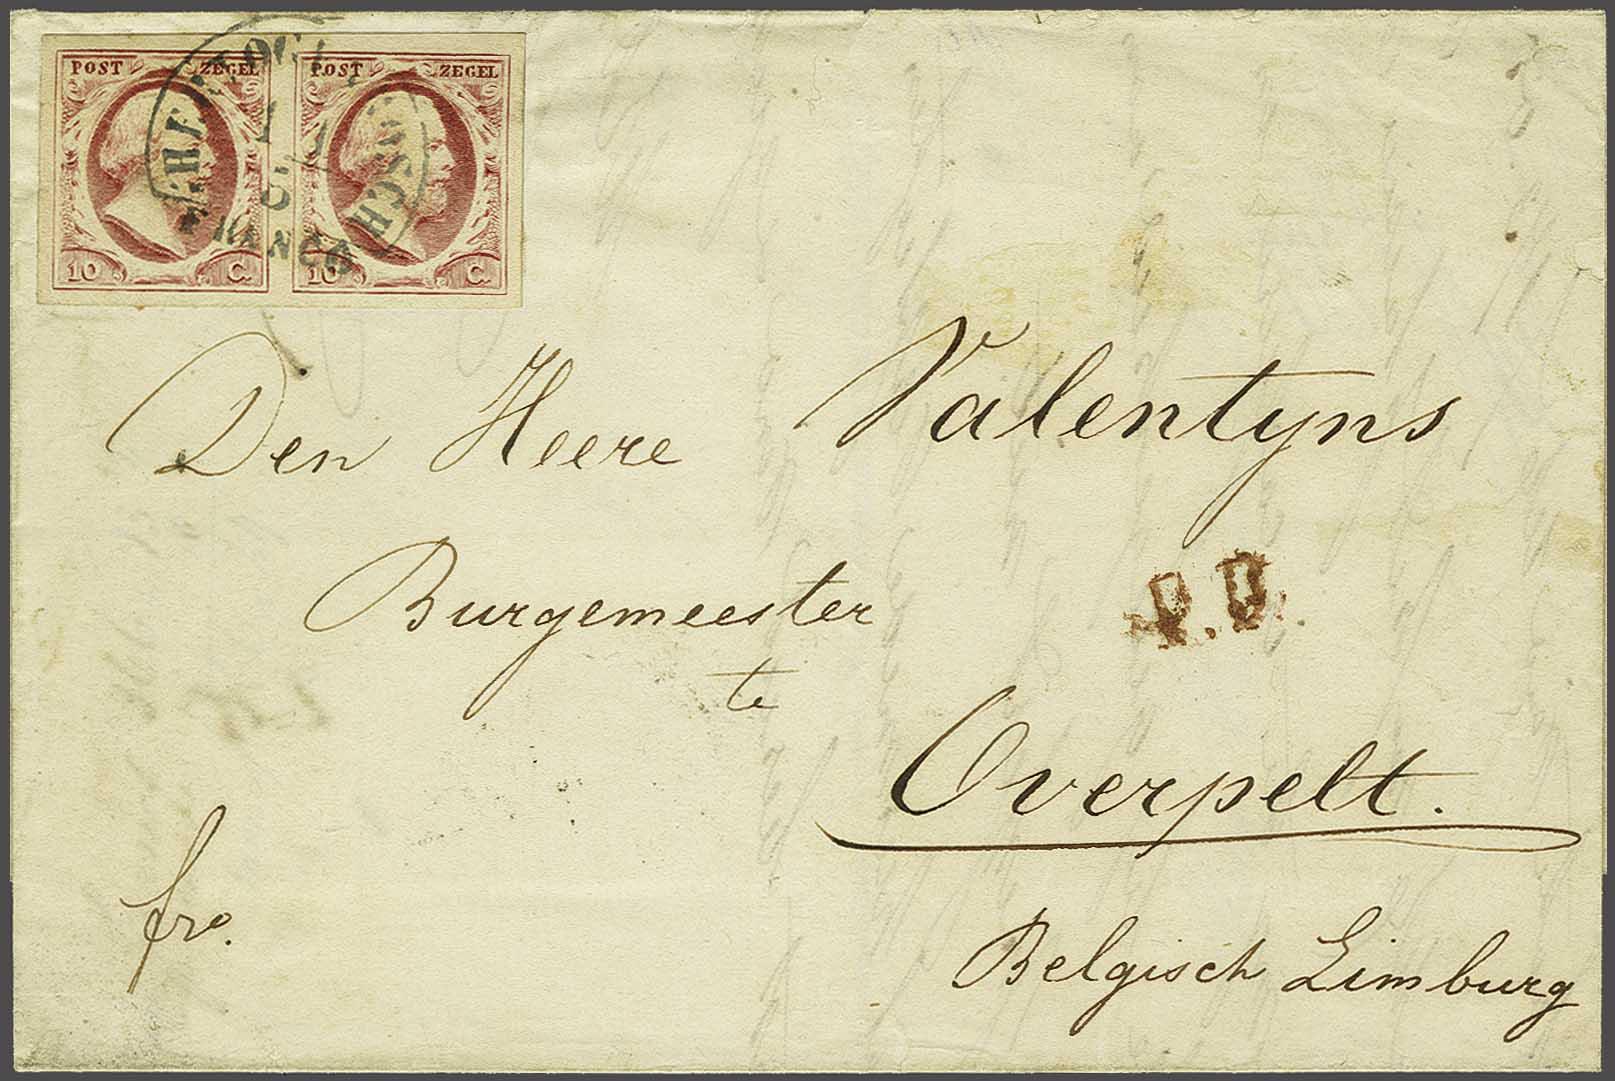 POST ZEGEL POST ZEGEL
10 C. 10 C.
FRANCO
Den Heere Valentyns
Burgemeester
P.D.
te
Overpelt.
fro.
Belgisch Limburg